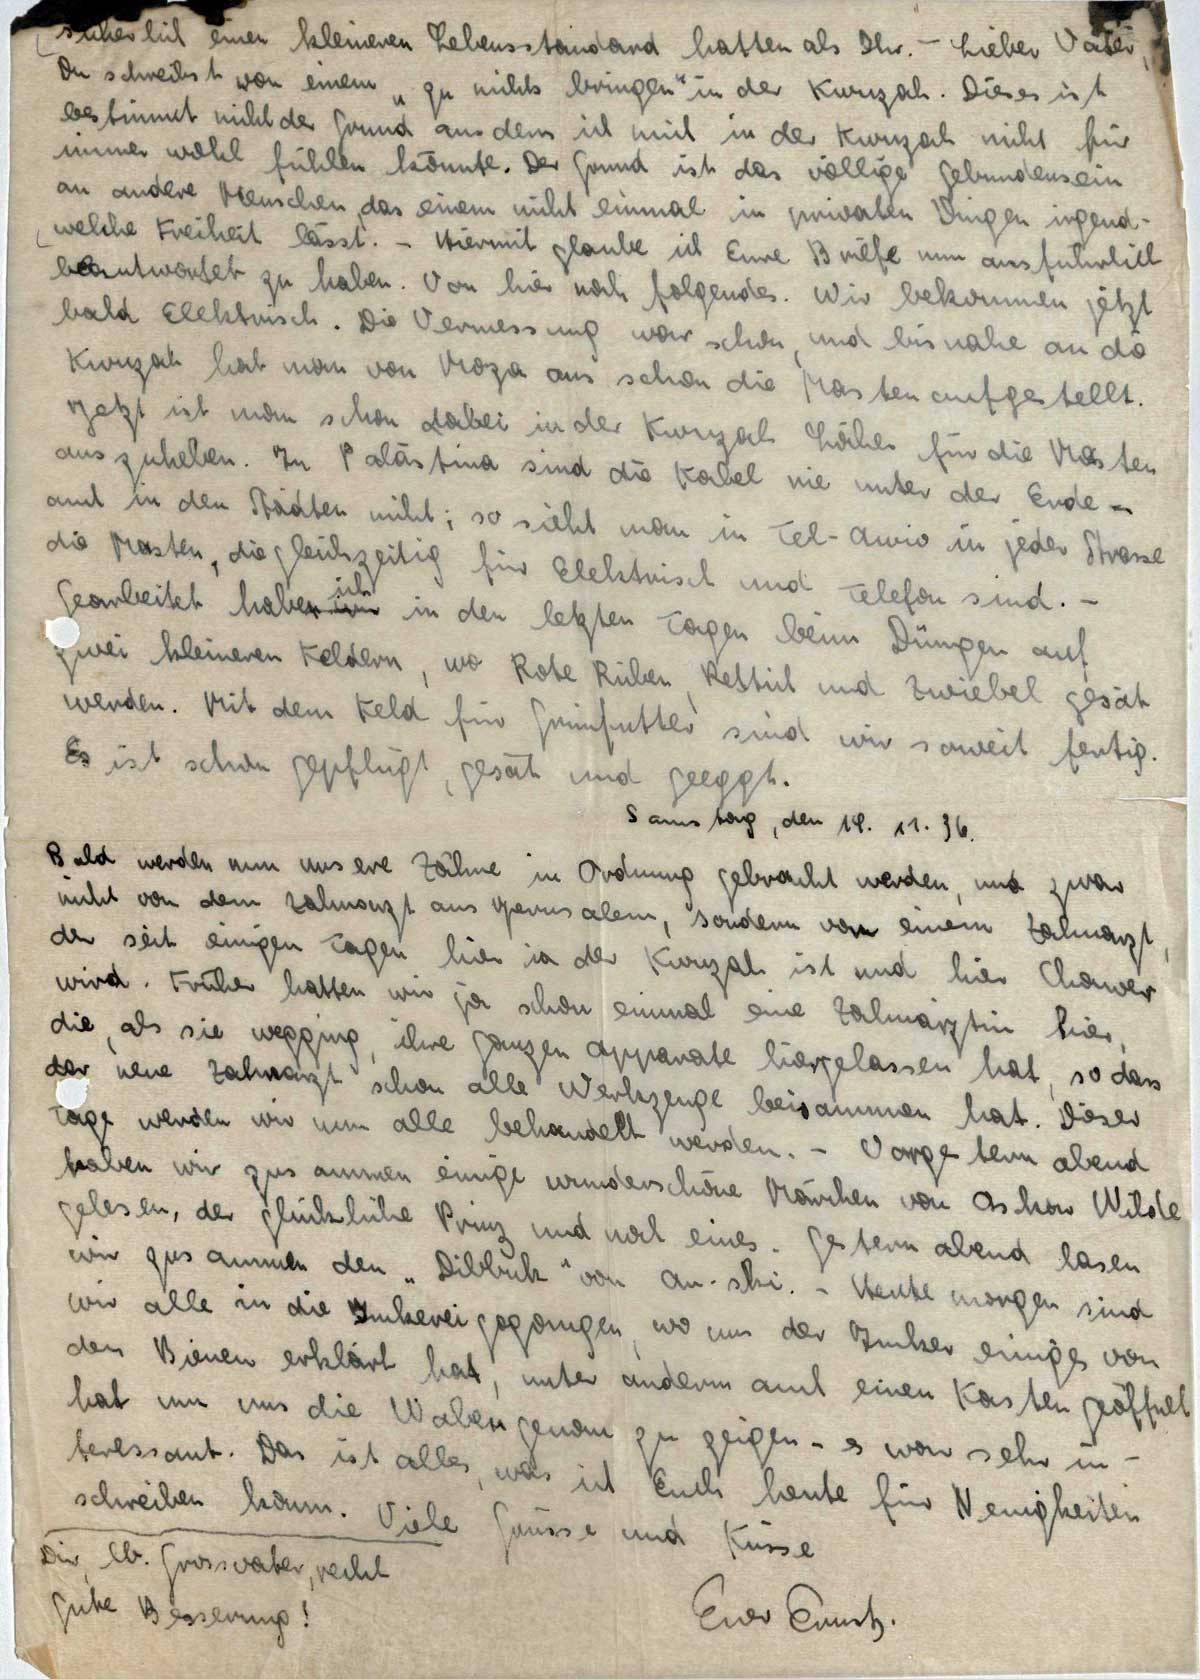 sicherlich einen kleineren Lebensstandard hatten als Ihr. - Lieber Vater,
Du schreibst von einem „zu nichts bringen" in der Kwuzah. Dieses ist
bestimmt nicht der Grund aus dem ich mich in der Kwuzah nicht für
immer wohl fühlen könnte. Der Grund ist das völlige Gebundensein
an andere Menschen, das einem nicht einmal in privaten Dingen irgend-
welche Freiheit lässt. - Hiermit glaube ich Eure Briefe nun ausführlich
beantwortet zu haben. Von hier noch folgendes. Wir bekommen jetzt
bald Elektrisch. Die Vermessung war schon, und bis nahe an die
Kwuzah hat man von Moza aus schon die Masten aufgestellt.
Jetzt ist man schon dabei in der Kwuzah Löcher für die Masten
auszuheben. In Palästina sind die Kabel nie unter der Erde -
auch in den Städten nicht; so sieht man in Tel-Awiw in jeder Strasse
die Masten, die gleichzeitig für Elektrisch und Telefon sind. -
Gearbeitet habe ich in den letzten Tagen beim Düngen auf
zwei kleineren Feldern, wo Rote Rüben, Rettich und Zwiebel gesät
werden. Mit dem Feld für Grünfutter sind wir soweit fertig.
Es ist schon gepflügt, gesät und geeggt.
Samstag, den 14. 11. 36.
Bald werden nun unsere Zähne in Ordnung gebracht werden, und zwar
nicht von dem Zahnarzt aus Jerusalem, sondern von einem Zahnarzt,
der seit einigen Tagen hier in der Kwuzah ist und hier Chawer
wird. Früher hatten wir ja schon einmal eine Zahnärztin hier,
die, als sie wegging, ihre ganzen Apparate hiergelassen hat, so dass
der neue Zahnarzt schon alle Werkzeuge beisammen hat. Dieser
Tage werden wir nun alle behandelt werden. - Vorgestern abend
haben wir zusammen einige wunderschöne Märchen von Oskar Wilde
gelesen, der glückliche Prinz und noch eines. Gestern abend lasen
wir zusammen den „Dibbuk" von An-ski. - Heute morgen sind
wir alle in die Imkerei gegangen, wo uns der Imker einiges von
den Bienen erklärt hat, unter anderm auch einen Kasten geöffnet
hat um uns die Waben genau zu zeigen - es war sehr in-
teressant. Das ist alles, was ich Euch heute für Neuigkeiten
schreiben kann. Viele Grüsse und Küsse
Euer Ernst.
Dir, lb. Grossvater, recht
gute Besserung!